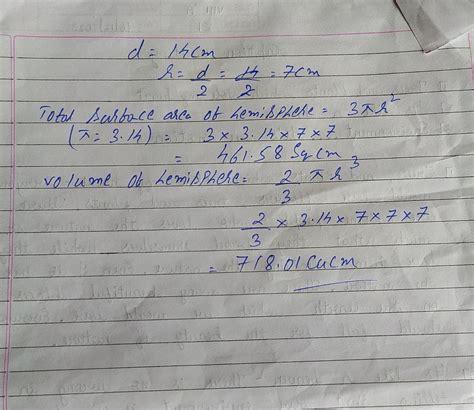 d = 14cm
r = d/2 = 14/2 = 7cm
Total Surface area of hemisphere = 3πr²
(π = 3.14) = 3 × 3.14 × 7 × 7
= 461.58 Sq cm
volume of hemisphere = 2/3 πr³
2/3 × 3.14 × 7 × 7 × 7
= 718.01 Cu cm